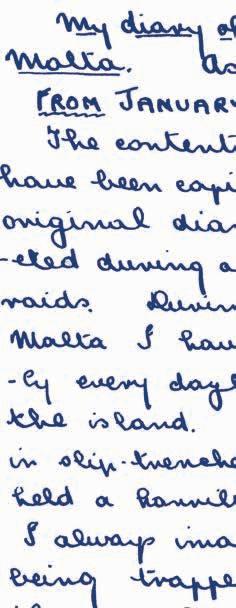 My diary of
Malta. As
FROM JANUARY
The content
have been copi
original dia
-cted during a
raids. Durin
Malta I hav
-ly every day
the island.
in slip-trenche
held a horrib
I always ima
being trappe